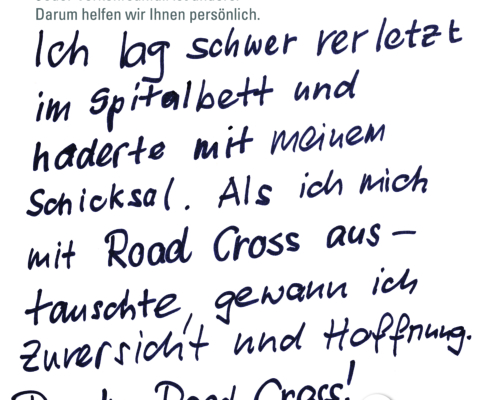 Darum helfen wir Ihnen persönlich.
Ich lag schwer verletzt
im Spitalbett und
haderte mit meinem
Schicksal. Als ich mich
mit Road Cross aus-
tauschte, gewann ich
Zuversicht und Hoffnung.
Road Cross!